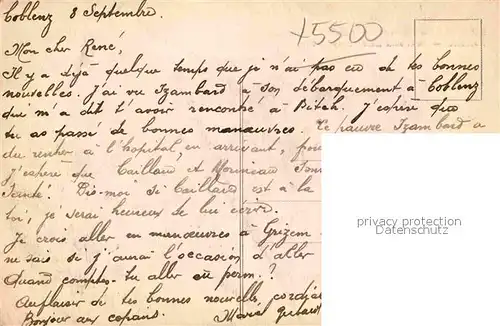 Coblenz 8 Septembre.
+5500
Mon cher René,
Il y a déjà quelque temps que je n'ai pas eu de tes bonnes
nouvelles. J'ai vu Izambard à son débarquement à Coblenz
qui m'a dit t'avoir rencontré à Bitch. J'espère que
tu as passé de bonnes manœuvres. Le pauvre Izambard a
du rentrer à l'hopital en arrivant,
J'espère que Caillaud et
santé! Dis-moi si Caillaud est à la
toi, je serai heureux de lui écrire.
Je crois aller en manœuvres à Griezem
ne sais si j'aurai l'occasion d'aller
Quand comptes-tu aller en perm.?
Au plaisir de tes bonnes nouvelles,
Bonjour aux copains. Marcel
privacy protection